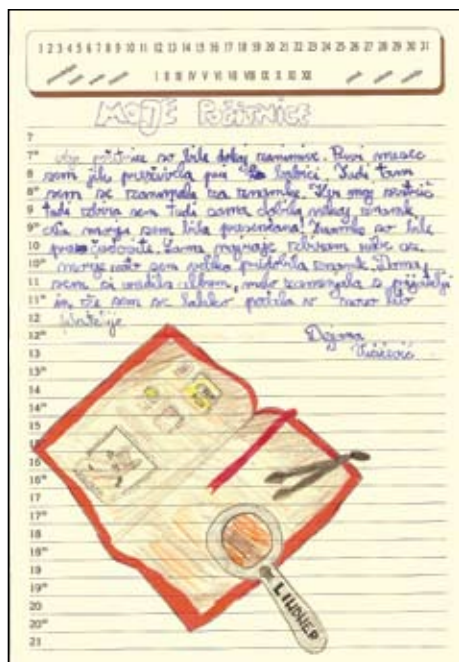 1 2 3 4 5 6 7 8 9 10 11 12 13 14 15 16 17 18 19 20 21 22 23 24 25 26 27 28 29 30 31
I II III IV V VI VII VIII IX X XI XII
MOJE POČITNICE
7
7³⁰ počitnice so bile dokaj zanimive. Prvi mesec
8 sem jih preživela pri babici. Tudi tam
8³⁰ sem se zanimala za znamke. Ker moj
9 tudi zbira sem tudi sama dobila nekaj znamk.
9³⁰ morju sem bila presenečena. Znamke so bile
10 čudovite. Sama najraje zbiram ribe
10³⁰ morje zato sem veliko pridobila znamk. Doma
11 sem si uredila album, malo zamenjala s prijatelji
11³⁰ in že sem se lahko podala v novo leto
12
12³⁰
13
13³⁰
14
14³⁰
15
15³⁰
16
16³⁰
17
17³⁰
18
18³⁰
19
19³⁰
20
20³⁰
21
LINDNER